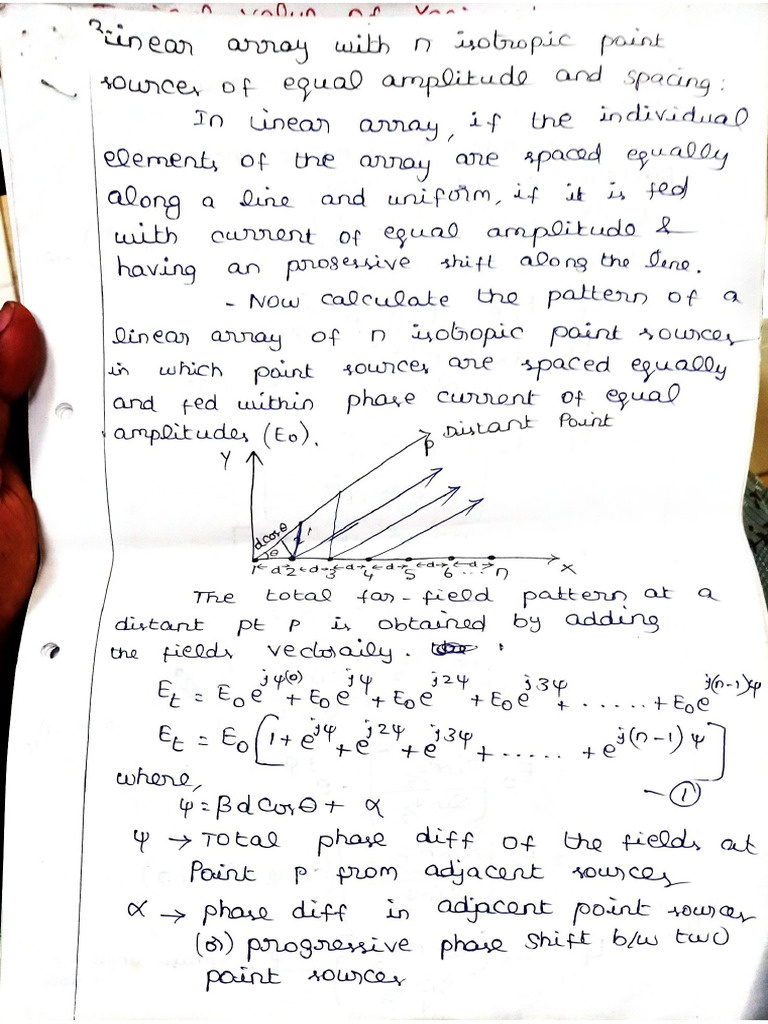 Linear array with n isotropic point
sources of equal amplitude and spacing:
In Linear array, if the individual
elements of the array are spaced equally
along a line and uniform, if it is fed
with current of equal amplitude &
having an progessive shift along the line.
- Now calculate the pattern of a
linear array of n isotropic point sources
in which point sources are spaced equally
and fed within phase current of equal
amplitudes (E0).
P Distant Point
Y
dcosθ
θ
1 ←d→ 2 ←d→ 3 ←d→ 4 ←d→ 5 ←d→ 6 ←d→ n X
The total far-field pattern at a
distant pt P is obtained by adding
the fields vectoraily.
Et = E0 e^jψ(0) + E0 e^jψ + E0 e^j2ψ + E0 e^j3ψ + ...... + E0 e^j(n-1)ψ
Et = E0 [1 + e^jψ + e^j2ψ + e^j3ψ + ...... + e^j(n-1)ψ]
— ①
where,
ψ = βd cosθ + α
ψ → Total phase diff of the fields at
Point P from adjacent sources
α → phase diff in adjacent point sources
(or) progressive phase shift b/w two
point sources